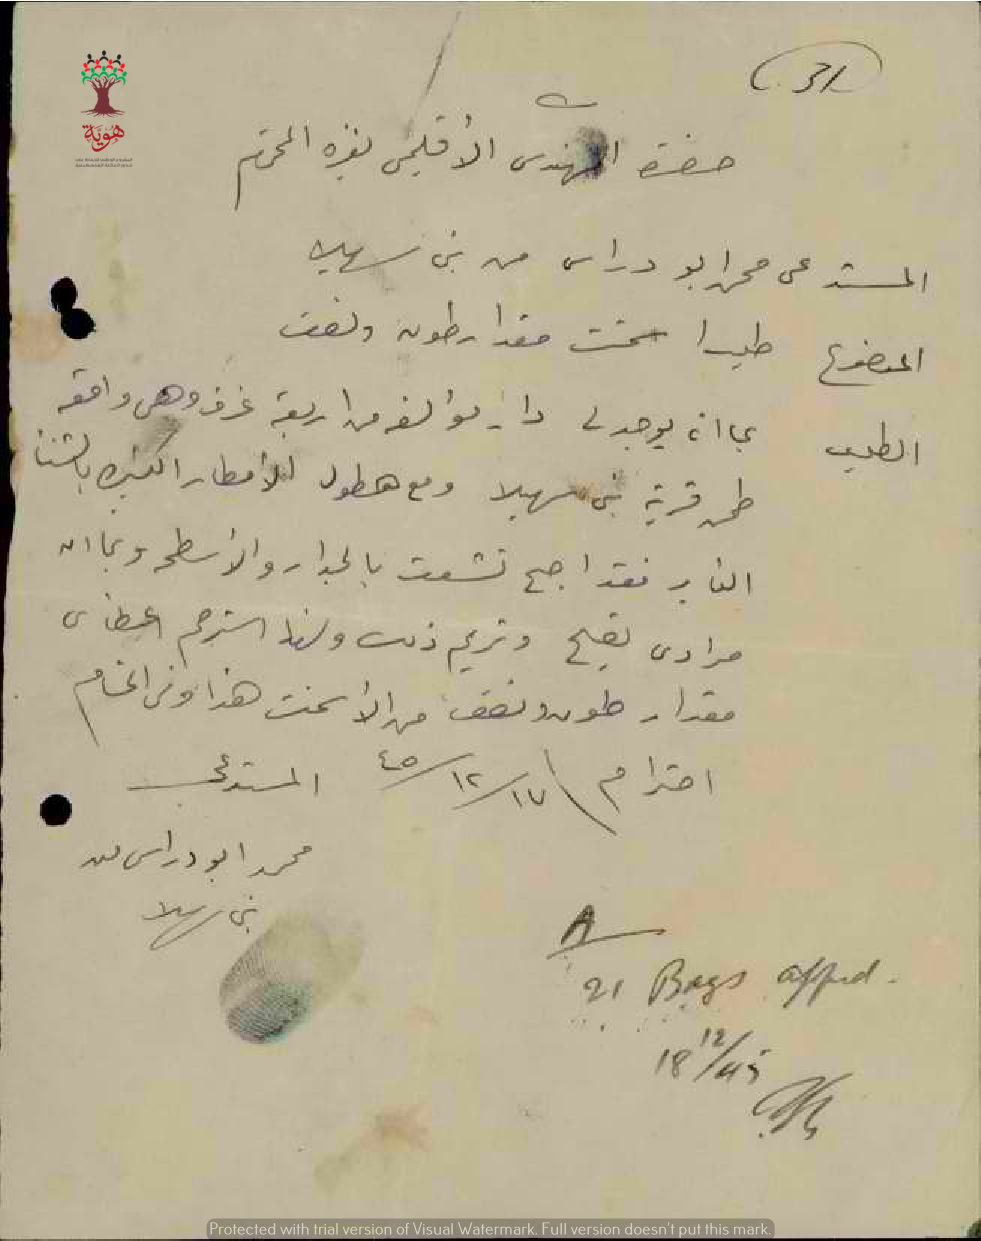 31
حضرة المهندس الأقليمي بغزه المحترم
المستدعي محمد ابو دراس من بني سهيلا
الموضوع طلب اسمنت مقدار طون ونصف
الطلب بما انه يوجد لي دار مؤلفه من اربعة غرف وهي واقعه
قرية بني سهيلا ومع هطول الأمطار الكثيره بالشتاء
فقد اصبح تشعت بالجدار والأسطحه وبما ان
مرادي تصليح وترميم ذلك ولهذا استرحم اعطائي
مقدار طون ونصف من الأسمنت هذا وفي الختام
احترام ١٧/١٢/٤٥ المستدعي
محمد ابو دراس من
بني سهيلا
A
21 Bags appd.
18 12/45
هوية
Protected with trial version of Visual Watermark. Full version doesn't put this mark.